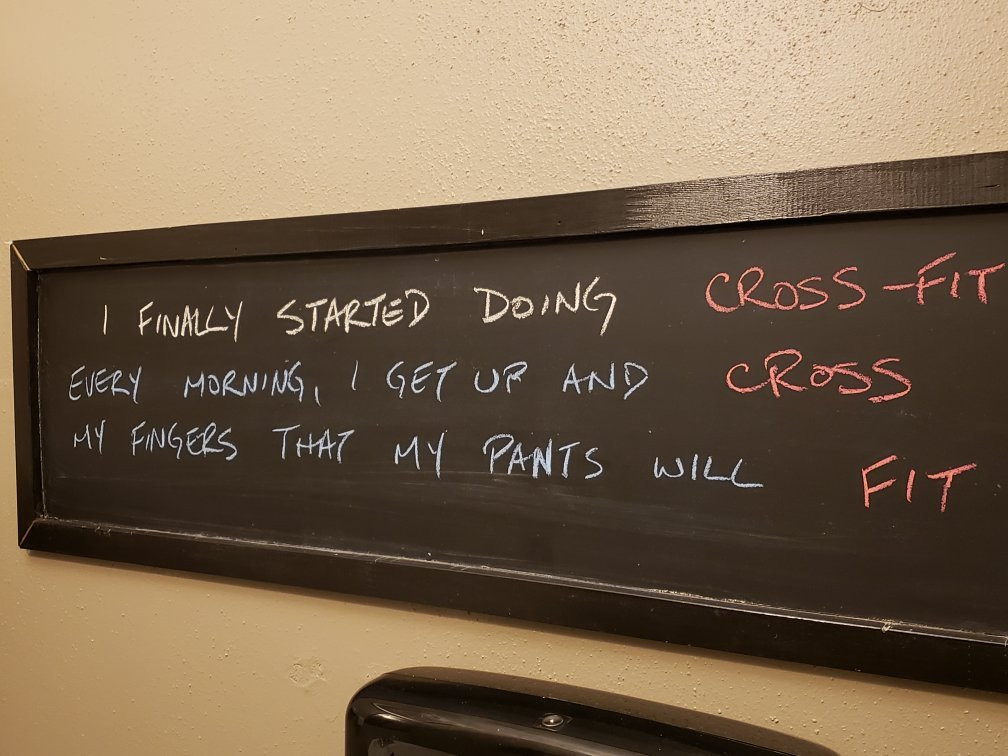 I FINALLY STARTED DOING CROSS-FIT
EVERY MORNING, I GET UP AND CROSS
MY FINGERS THAT MY PANTS WILL FIT